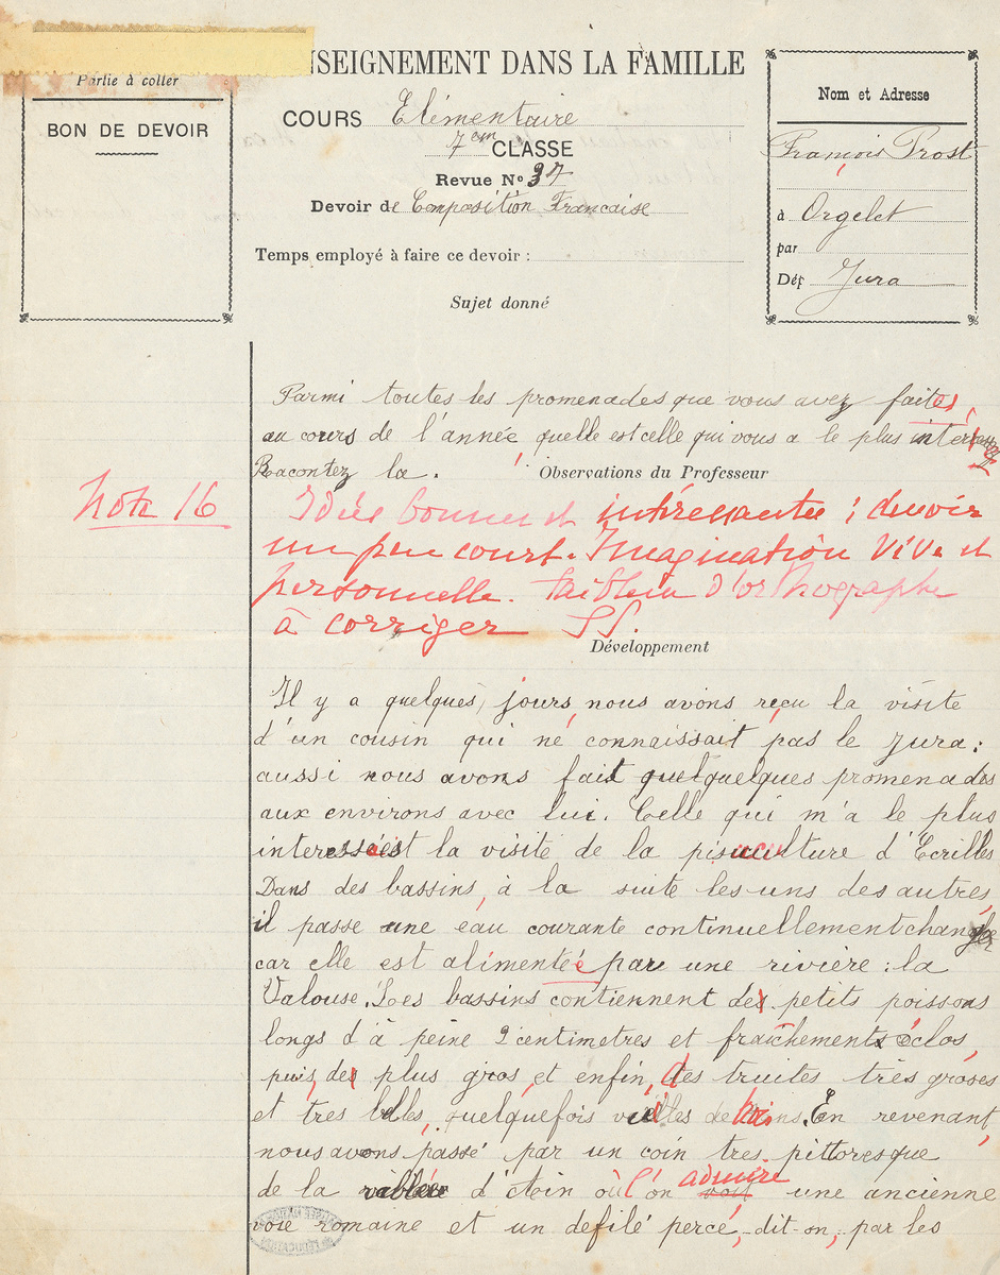 NSEIGNEMENT DANS LA FAMILLE
Partie à coller
BON DE DEVOIR
COURS Elémentaire
7em CLASSE
Revue No 37
Devoir de Composition Francaise
Temps employé à faire ce devoir :
Sujet donné
Nom et Adresse
François Prost
à Orgelet
par
Dép Jura
Parmi toutes les promenades que vous avez faites,
au cours de l'année, quelle est celle qui vous a le plus
Racontez la.
Observations du Professeur
Note 16
Idées bonnes et intéressantes ; devoir
un peu court. Imagination vive et
personnelle. Faiblesse d'orthographe
à corriger SS.
Développement
Il y a quelques jours, nous avons reçu la visite
d'un cousin qui ne connaissait pas le Jura :
aussi nous avons fait quelques promenades
aux environs avec lui. Celle qui m'a le plus
est la visite de la pisciculture d'Ecrilles
Dans des bassins, à la suite les uns des autres,
il passe une eau courante continuellement
car elle est alimentée par une rivière : la
Valouse. Les bassins contiennent de petits poissons
longs d'à peine 2 centimetres et fraîchement éclos,
puis, de plus gros, et enfin, des truites très groses
et tres belles, quelquefois vieilles de ans. En revenant,
nous avons passé par un coin tres pittoresque
de la vallée d'où l'on admire une ancienne
voie romaine et un defilé percé, dit-on, par les